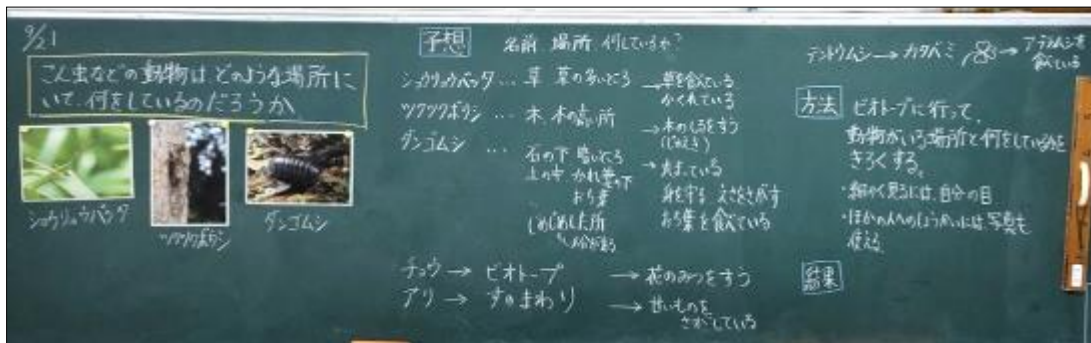 9/21
こん虫などの動物は どのような場所に
いて、何をしているのだろうか
ショウリョウバッタ
ツクツクボウシ
ダンゴムシ
予想 名前 場所 何しているか?
ショウリョウバッタ… 草 草の多いところ →草を食べている
かくれている
ツクツクボウシ … 木 木の高い所 →木のしるをすう
(じゅえき)
ダンゴムシ … 石の下 暗いところ →丸まっている
土の中 かれ葉の下 身を守る えさをさがす
おち葉 おち葉を食べている
しめじめした所
水分がある
チョウ → ビオトープ → 花のみつをすう
アリ → すのまわり → 甘いものを
さがしている
テントウムシ → カタバミ → アブラムシを
食べている
方法 ビオトープに行って、
動物がいる場所と何をしているかを
きろくする。
・細かく見るには、自分の目
・ほかの人へのしょうかいには写真も
使える
結果